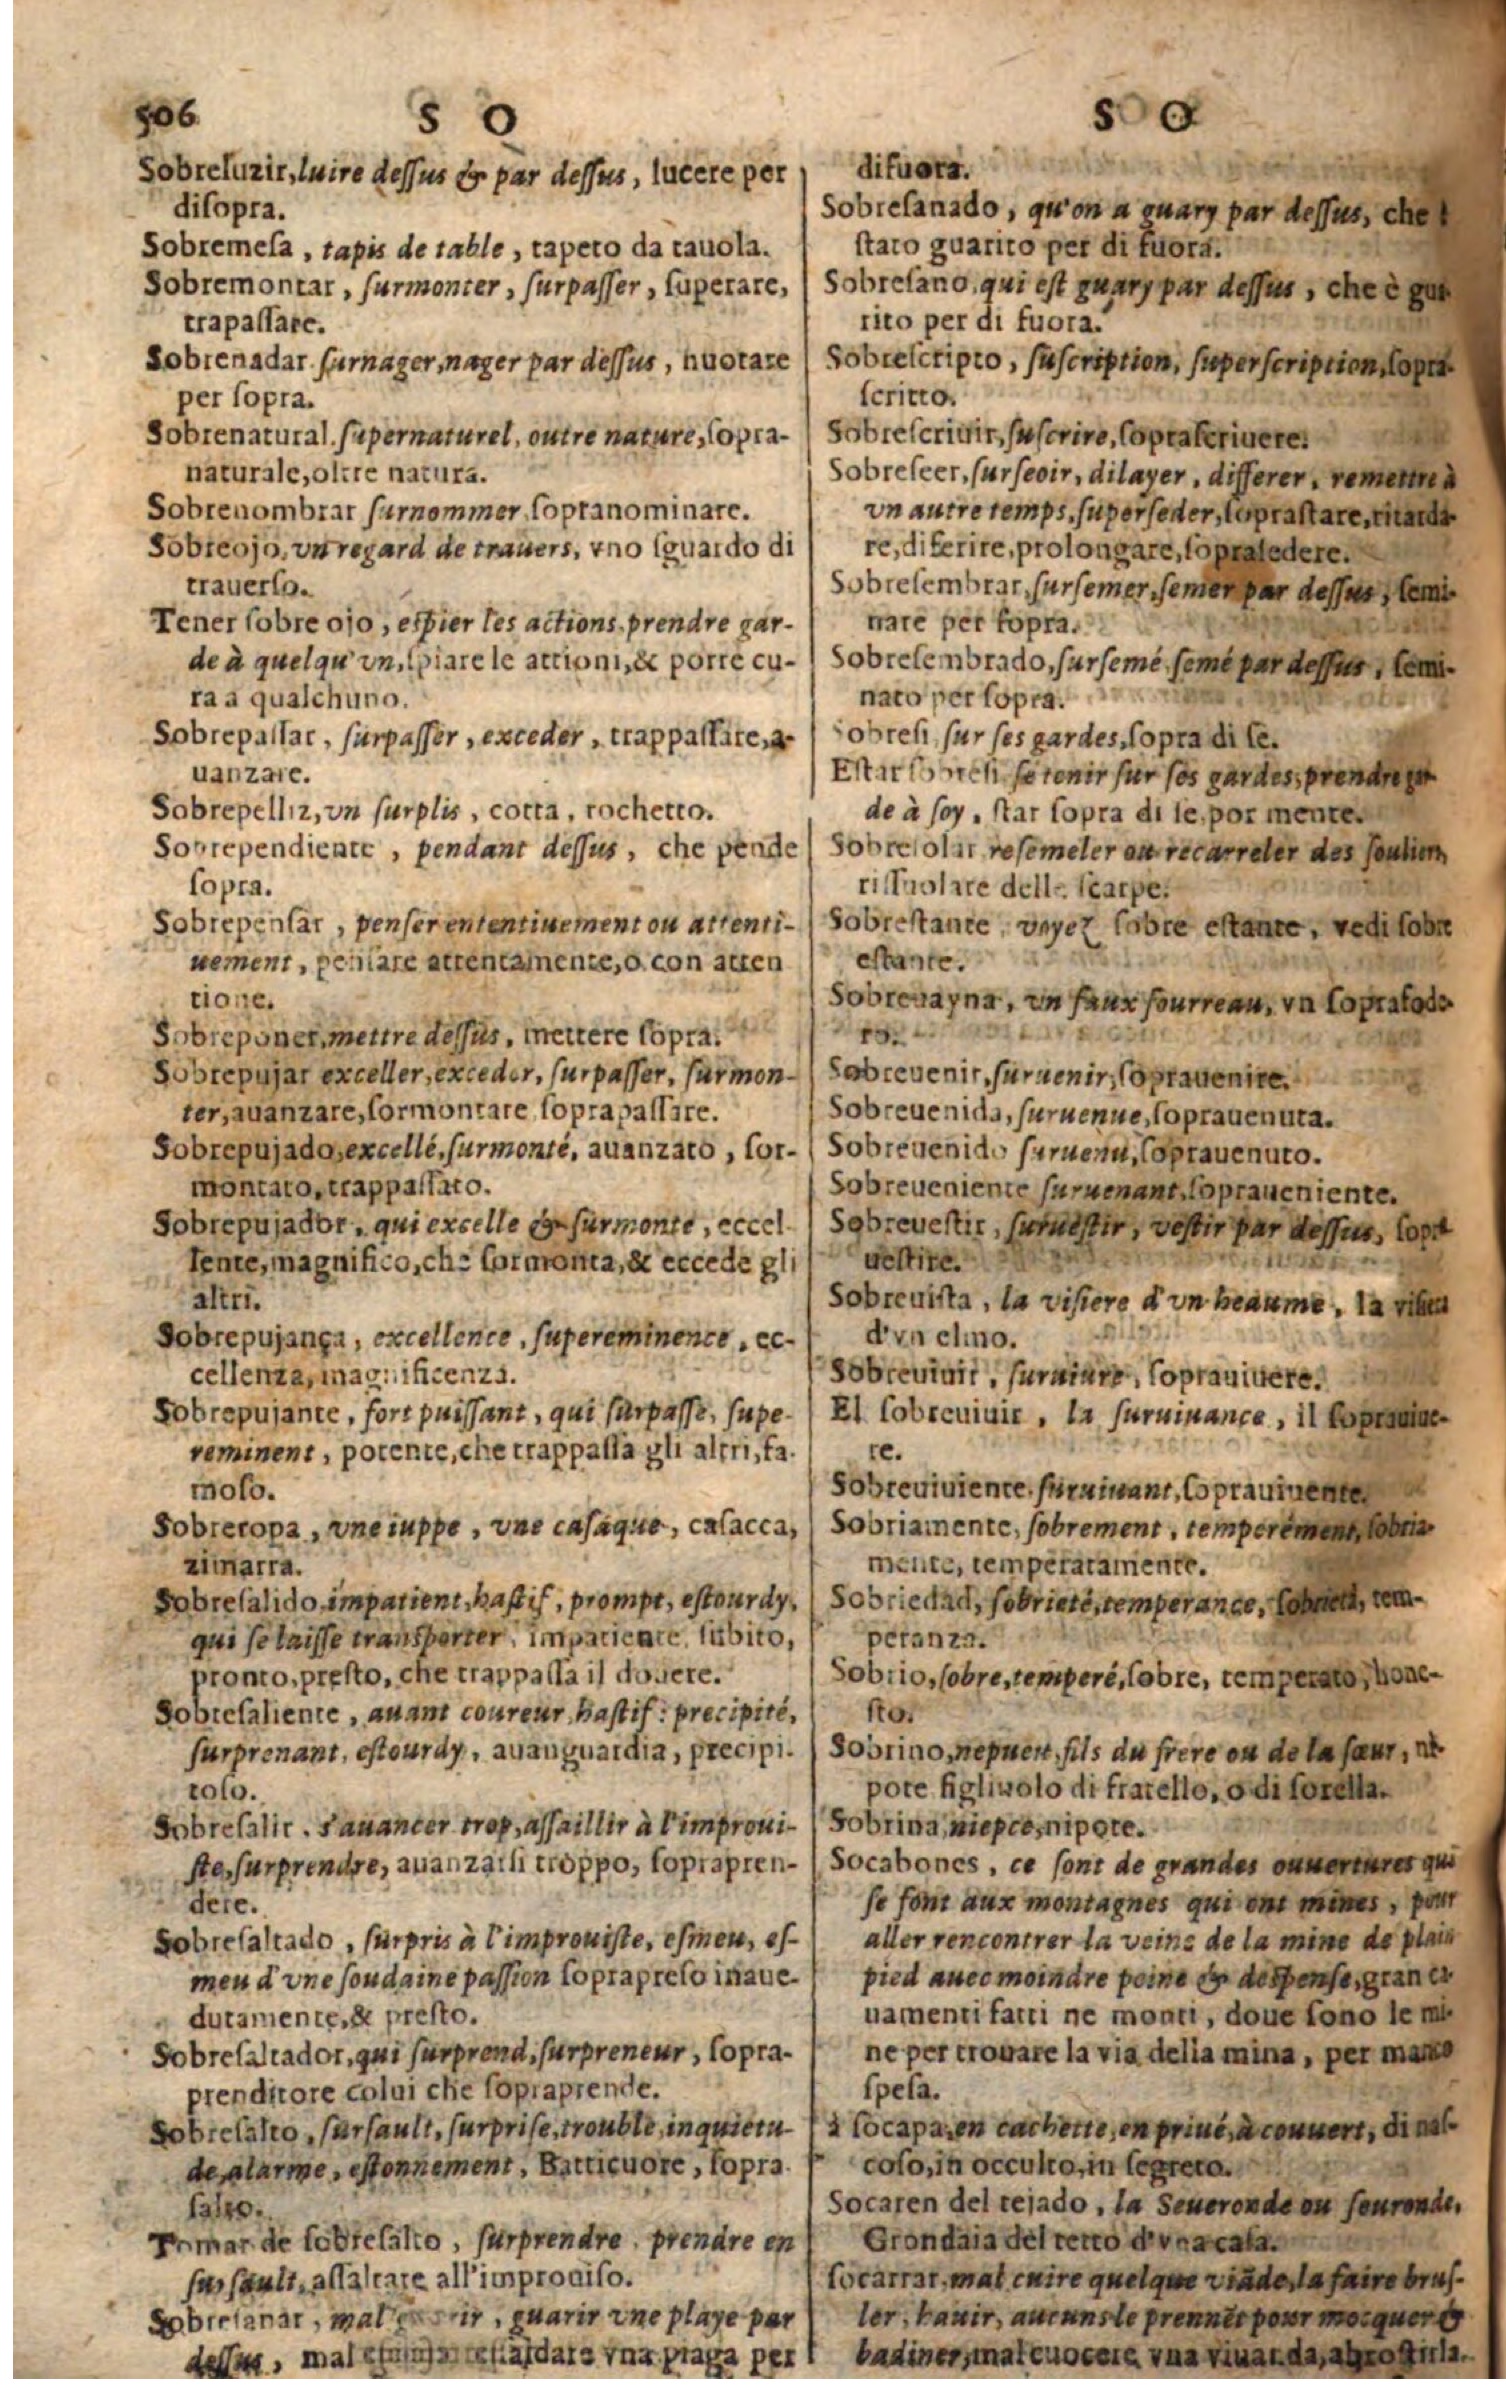 506
S O
Sobreluzir, luire dessus & par dessus, lucere per
disopra.
Sobremesa, tapis de table, tapeto da tauola.
Sobremontar, surmonter, surpasser, superare,
trapassare.
Sobrenadar. surnager, nager par dessus, nuotare
per sopra.
Sobrenatural. supernaturel, outre nature, sopra-
naturale, oltre natura.
Sobrenombrar surnommer, sopranominare.
Sobreojo, vn regard de trauers, vno sguardo di
trauerso.
Tener sobre ojo, espier les actions, prendre gar-
de à quelqu'vn, spiare le attioni, & porre cu-
ra a qualchuno.
Sobrepassar, surpasser, exceder, trappassare, a-
uanzare.
Sobrepelliz, vn surplis, cotta, rochetto.
Sobrependiente, pendant dessus, che pende
sopra.
Sobrepensar, penser ententiuement ou attenti-
uement, pensare attentamente, o con atten
tione.
Sobreponer, mettre dessus, mettere sopra.
Sobrepujar exceller, exceder, surpasser, surmon-
ter, auanzare, sormontare soprapassare.
Sobrepujado, excellé, surmonté, auanzato, sor-
montato, trappassato.
Sobrepujador, qui excelle & surmonte, eccel
lente, magnifico, che sormonta, & eccede gli
altri.
Sobrepujança, excellence, supereminence, ec-
cellenza, magnificenza.
Sobrepujante, fort puissant, qui surpasse, supe-
reminent, potente, che trappassa gli altri, fa-
moso.
Sobreropa, vne iuppe, vne casaque, casacca,
zimarra.
Sobresalido, impatient, hastif, prompt, estourdy,
qui se laisse transporter, impatiente, subito,
pronto, presto, che trappassa il douere.
Sobresaliente, auant coureur, hastif: precipité,
surprenant, estourdy, auanguardia, precipi-
toso.
Sobresalir, s'auancer trop, assaillir à l'improui-
ste, surprendre, auanzarsi troppo, soprapren-
dere.
Sobresaltado, surpris à l'improuiste, esmeu, es-
meu d'vne soudaine passion soprapreso inaue-
dutamente, & presto.
Sobresaltador, qui surprend, surpreneur, sopra-
prenditore colui che sopraprende.
Sobresalto, sursault, surprise, trouble, inquietu-
de, alarme, estonnement, Batticuore, sopra
salto.
Tomar de sobresalto, surprendre, prendre en
sursault, assaltare all'improuiso.
Sobresanar, mal guarir, guarir vne playe par
dessus, mal vna piaga per
S O
difuora.
Sobresanado, qu'on a guary par dessus, che
stato guarito per di fuora.
Sobresano, qui est guary par dessus, che è gua-
rito per di fuora.
Sobrescripto, suscription, superscription, sopra-
scritto.
Sobrescriuir, suscrire, soprascriuere.
Sobreseer, surseoir, dilayer, differer, remettre à
vn autre temps, superseder, soprastare, ritarda-
re, diferire, prolongare, soprasedere.
Sobresembrar, sursemer, semer par dessus, semi-
nare per sopra.
Sobresembrado, sursemé semé par dessus, semi-
nato per sopra.
Sobresi, sur ses gardes, sopra di se.
Estar sobresi, se tenir sur ses gardes, prendre gar-
de à soy, star sopra di se, por mente.
Sobresolar, resemeler ou recarreler des souliers,
rissuolare delle scarpe.
Sobrestante, voyez sobre estante, vedi sobre
estante.
Sobreuayna, vn faux fourreau, vn soprafode-
ro.
Sobreuenir, suruenir, soprauenire.
Sobreuenida, suruenue, soprauenuta.
Sobreuenido suruenu, soprauenuto.
Sobreueniente suruenant, sopraueniente.
Sobreuestir, suruestir, vestir par dessus, sopra
uestire.
Sobreuista, la visiere d'vn heaume, la visiera
d'vn elmo.
Sobreuiuir, suruiure, soprauiuere.
El sobreuiuir, la suruiuance, il soprauiue-
re.
Sobreuiuiente, suruiuant, soprauiuente.
Sobriamente, sobrement, temperément, sobria-
mente, temperatamente.
Sobriedad, sobrieté, temperance, sobrietà, tem-
peranza.
Sobrio, sobre, temperé, sobre, temperato, hone-
sto.
Sobrino, nepueu, fils du frere ou de la sœur, ne-
pote figliuolo di fratello, o di sorella.
Sobrina, niepce, nipote.
Socabones, ce sont de grandes ouuertures qui
se font aux montagnes qui ont mines, pour
aller rencontrer la veine de la mine de plain
pied auec moindre peine & despense, gran ca-
uamenti fatti ne monti, doue sono le mi-
ne per trouare la via della mina, per manco
spesa.
à socapa, en cachette, en priué, à couuert, di nas-
coso, in occulto, in segreto.
Socaren del tejado, la Seueronde ou souronde,
Grondaia del tetto d'vna casa.
socarrar, mal cuire quelque viāde, la faire brus-
ler, hauir, aucuns le prennēt pour mocquer &
badiner, mal cuocere vna viuanda, abrostirla.